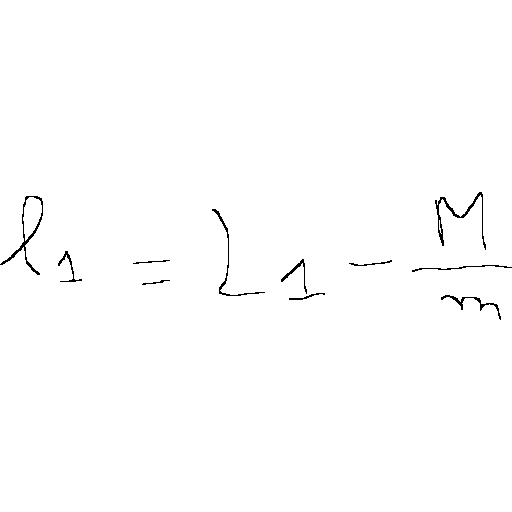 l_1 = L_1 - \frac{M}{m}